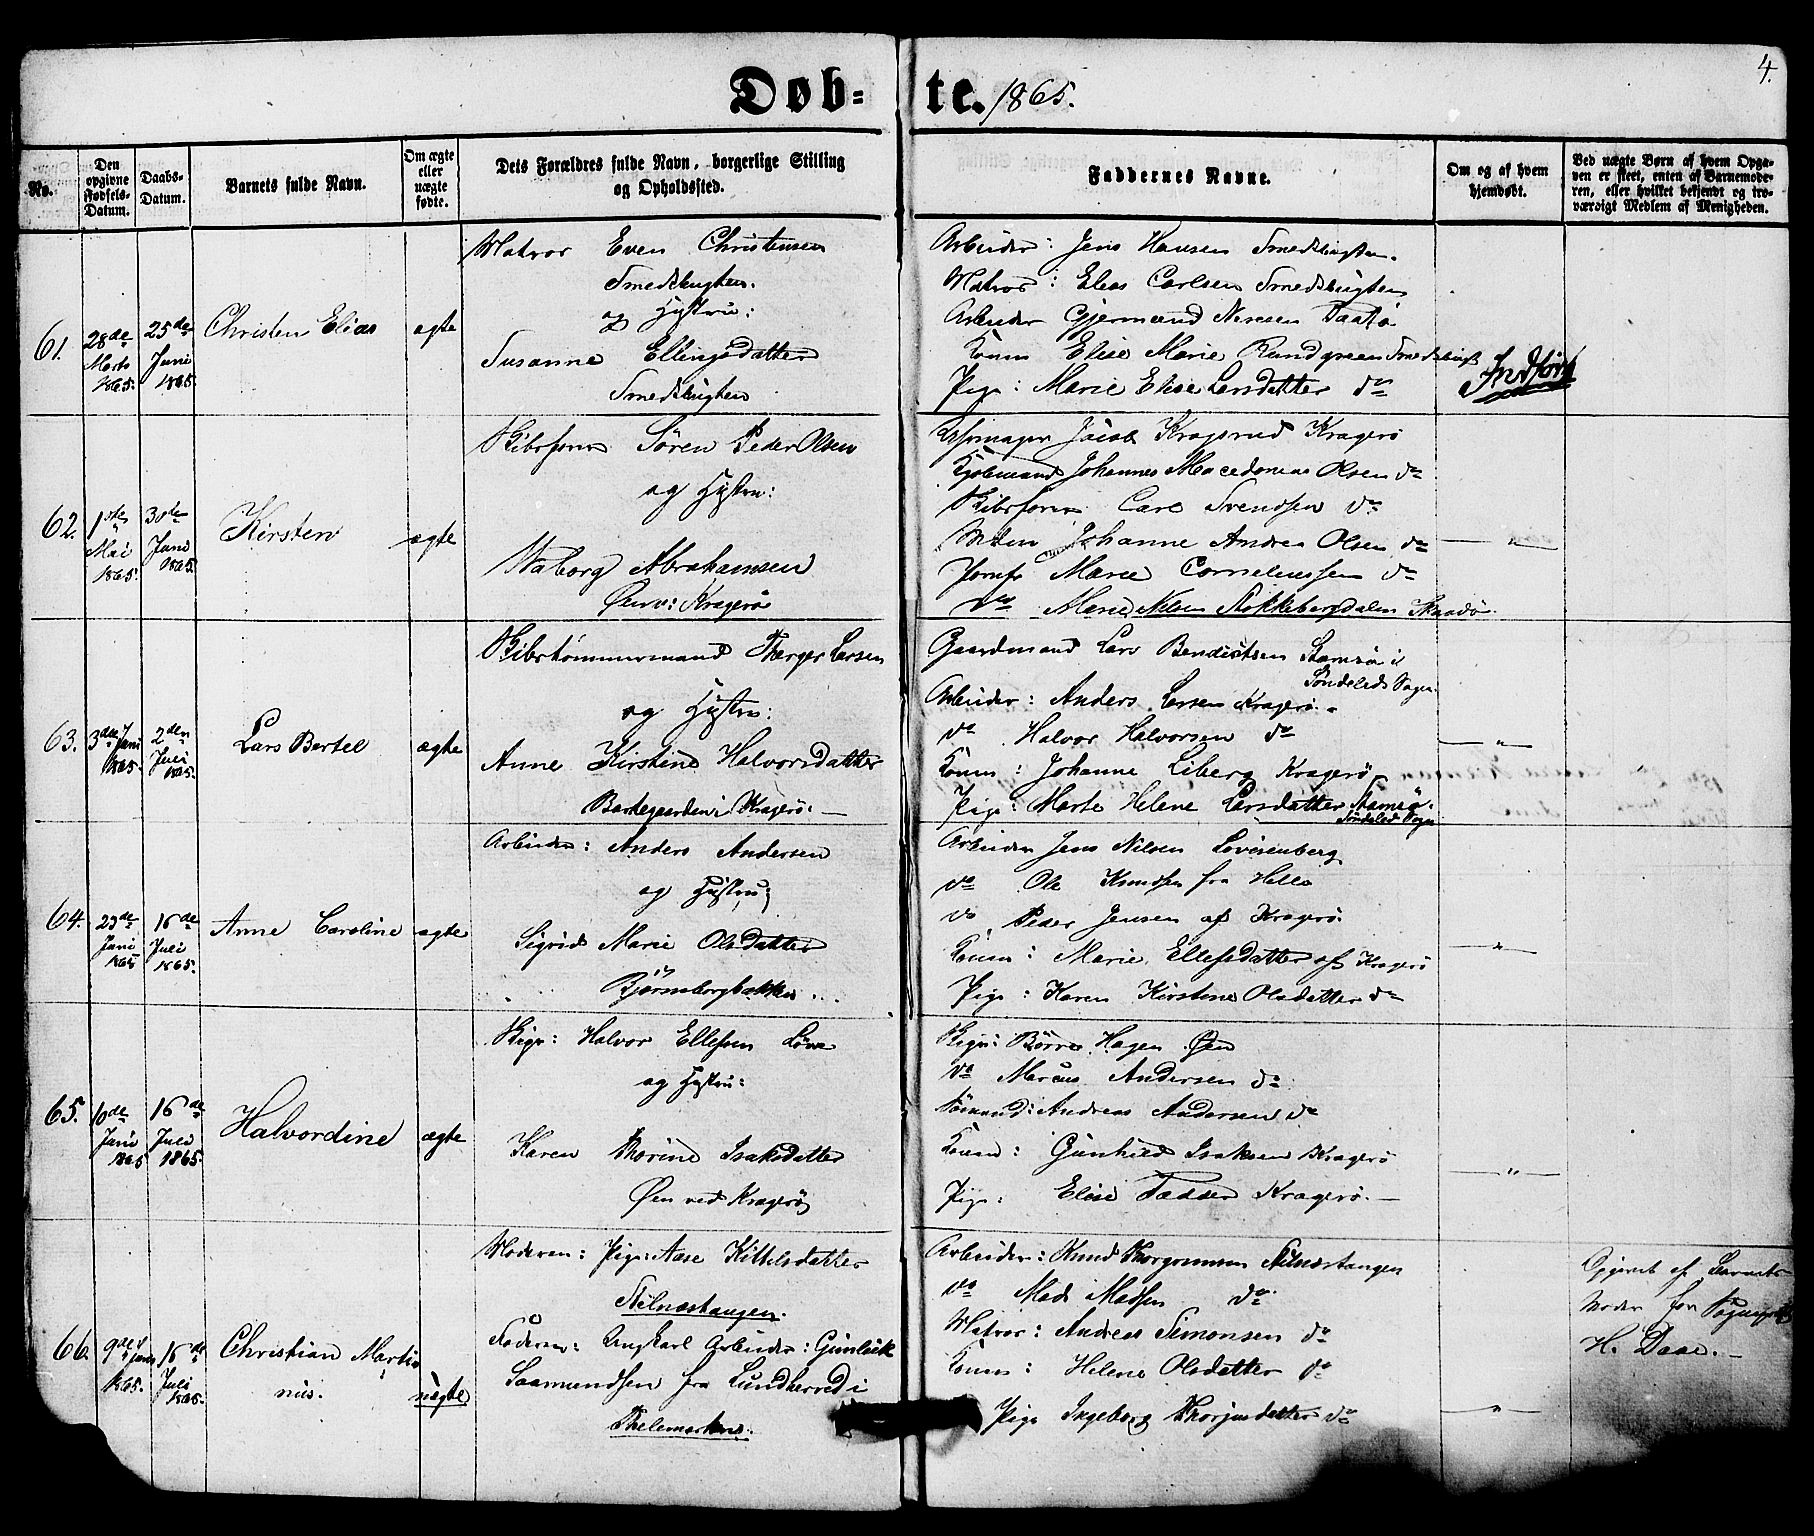 Døb-te. 1865.
4.
No.
Den opgivne Fødsels-Datum.
Daabs-Datum.
Barnets fulde Navn.
Om ægte eller uægte fødte.
Dets Forældres fulde Navn, borgerlige Stilling og Opholdssted.
Faddernes Navne.
Om og af hvem hjemdøbt.
Ved uægte Børn af hvem Opgaven er skeet, enten af Barnemoderen, eller hvilket bekjendt og troværdigt Medlem af Menigheden.
61.
28de Marts 1865.
25de Juni 1865.
Christen Elias
ægte
Matros Even Christensen
Smedsbugten.
og Hustru:
Susanne Ellingsdatter
Smedsbugten
Arbeider: Jens Hansen Smedsbugten.
Matros: Elias Carlsen Smedsbugten
Arbeider Gjermund Nersen Taatø
Konen Elise Marie Rundgreen Smedsbugt
Pige: Marie Elise Larsdatter do
Indført
62.
1ste Mai 1865.
30te Juni 1865.
Kirsten
ægte
Skibsfører Søren Peder Olsen
og Hustru:
Waborg Abrahamsen
Øen v: Kragerø
Jacob Kragsrud Kragerø
Kjøbmand Johannes Macedonias Olsen do
Skibsfører Carl Svendsen do
Johanne Andrea Olsen do
Jomfr Marie Corneliussen do
do Marie Nilsen Stokkebergdalen Skaadø.
"
63.
3die Juni 1865.
2den Juli 1865.
Lars Bertel
ægte
Skibstømmermand Therger Larsen
og Hustru:
Anne Kirstine Halvorsdatter
Barthegaarden i Kragerø.
Gaardmand Lars Bendictsen Stamsø i
Søndeleds Sogn.
Arbeider: Anders Larsen Kragerø.
do Halvor Halvorsen do
Konen: Johanne Liberg Kragerø
Pige: Marte Helene Larsdatter Stamsø.
Søndeled Sogn
"
64.
29de Juni 1865
16de Juli 1865.
Anne Caroline
ægte
Arbeider: Anders Andersen
og Hustru;
Sigrid Marie Olsdatter
Bjørnsborgbakken
Arbeider Jens Nilsen Lovisenberg
do Ole Knudsen fra Helle
do Peder Jensen af Kragerø
Konen: Marie Ellefsdatter af Kragerø
Pige: Karen Kirstine Olsdatter do
"
65.
10de Juni 1865
16de Juli 1865.
Halvordine
ægte
Skipr: Halvor Ellefsen Løvaas
og Hustru:
Karen Thorine Isaksdatter
Øen ved Kragerø
Skipr: Børre Hagen Øen
do Marcus Andersen do
Sømand: Andreas Andersen do
Konen: Gunhild Isaksen Kragerø
Pige: Elise Tadder Kragerø.
"
66.
9de Juni 1865.
16de Juli 1865.
Christian Martinius.
uægte
Moderen: Pige: Aase Kittelsdatter
Stilnæstangen.
Faderen: Ungkarl Arbeider: Gunleik
Saamundsen fra Lundherred i
Thelemarken.
Arbeider: Knud Thorgrimsen Stilnæstangen
do Mads Madsen do
Matros: Andreas Simonsen do
Konen: Helene Olsdatter do
Pige Ingeborg Thorjusdatter do
"
Opgivet af Barnets
Moder for Sognepræst
H. Daae.